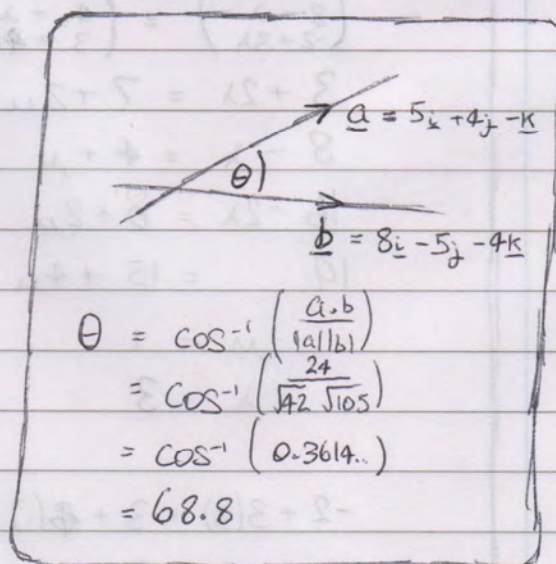 a = 5i + 4j - k
θ)
b = 8i - 5j - 4k
θ = cos⁻¹ (a.b / |a||b|)
= cos⁻¹ (24 / √42 √105)
= cos⁻¹ (0.3614..)
= 68.8